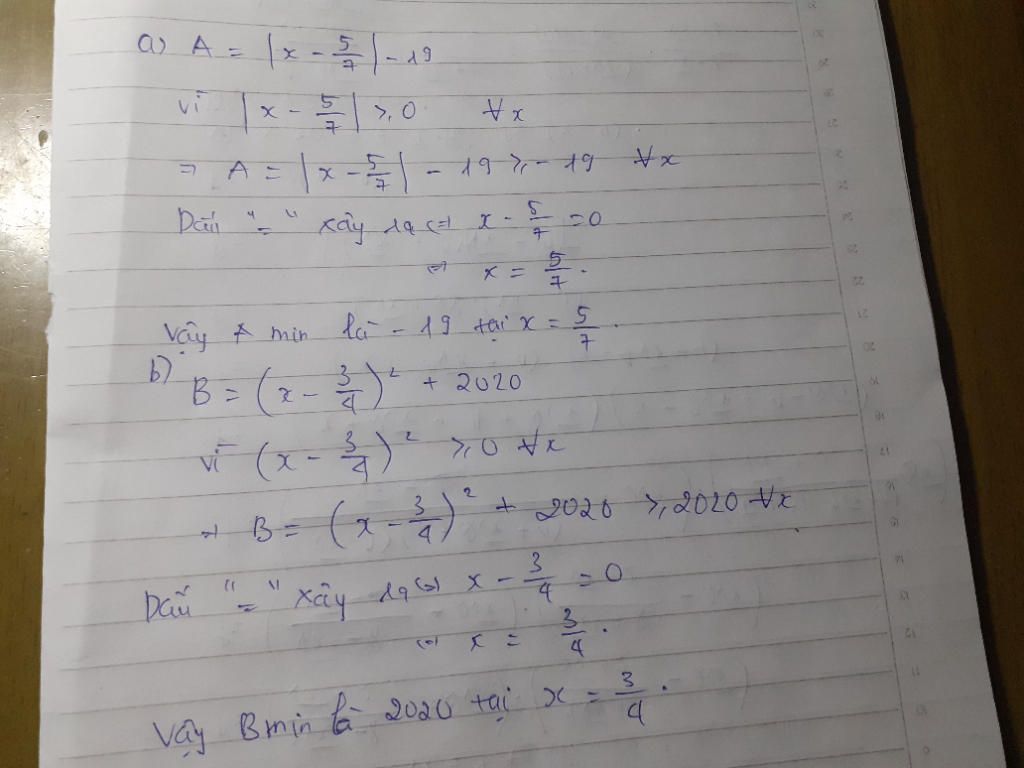 a) A = |x - 5/7| - 19
vì |x - 5/7| ≥ 0 ∀x
⇒ A = |x - 5/7| - 19 ≥ - 19 ∀x
Dấu "=" xảy ra ⇔ x - 5/7 = 0
⇔ x = 5/7.
Vậy A min là - 19 tại x = 5/7.
b) B = (x - 3/4)² + 2020
vì (x - 3/4)² ≥ 0 ∀x
⇒ B = (x - 3/4)² + 2020 ≥ 2020 ∀x
Dấu "=" xảy ra ⇔ x - 3/4 = 0
⇔ x = 3/4.
Vậy B min là 2020 tại x = 3/4.